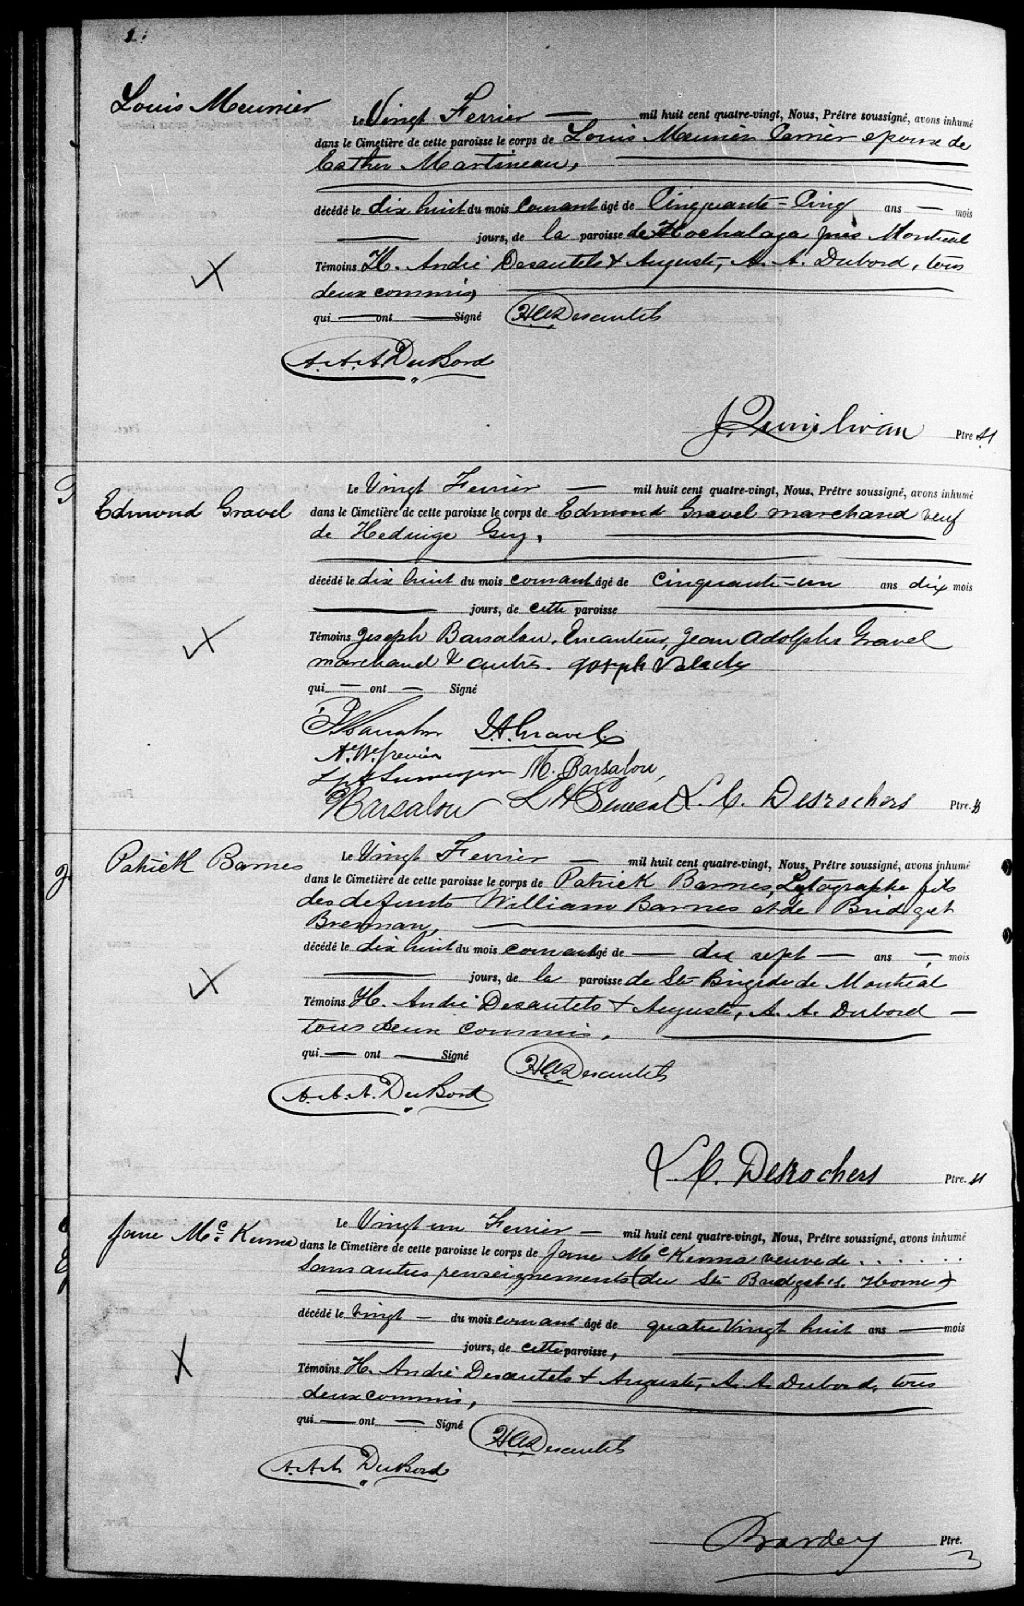 Louis Meunier
Le Vingt Fevrier — mil huit cent quatre-vingt, Nous, Prêtre soussigné, avons inhumé
dans le Cimetière de cette paroisse le corps de Louis Meunier Carrier epoux de
Esther Martineau,
décédé le dix huit du mois courant âgé de Cinquante-Cinq ans — mois
— jours, de la paroisse de Hochelaga près Montréal
Témoins H. André Desautels & Auguste, A. A. Dubord, tous
deux commis,
qui — ont — Signé HADesautels
A.A.A. DuBord
J. Quinlivan Ptre
Edmond Gravel
Le Vingt Fevrier — mil huit cent quatre-vingt, Nous, Prêtre soussigné, avons inhumé
dans le Cimetière de cette paroisse le corps de Edmond Gravel marchand veuf
de Hedwige Guy,
décédé le dix huit du mois courant âgé de cinquante-un ans dix mois
— jours, de cette paroisse
Témoins Joseph Barsalou, Encanteur, Jean Adolphe Gravel
marchand & autres. Joseph
qui — ont — Signé
J.A. Gravel
M. Barsalou,
Barsalou L. C. Desrochers Ptre.
Patrick Barnes
Le Vingt Fevrier — mil huit cent quatre-vingt, Nous, Prêtre soussigné, avons inhumé
dans le Cimetière de cette paroisse le corps de Patrick Barnes, Lytographe fils
des defunts William Barnes et de Bridget
Brennan,
décédé le dix huit du mois courant âgé de — dix sept — ans — mois
— jours, de la paroisse de Ste Brigide de Montréal
Témoins H. André Desautels & Auguste, A. A. Dubord —
tous deux commis,
qui — ont — Signé HADesautels
A.A.A. DuBord
L. C. Desrochers Ptre.
Jane McKenna
Le Vingt un Fevrier — mil huit cent quatre-vingt, Nous, Prêtre soussigné, avons inhumé
dans le Cimetière de cette paroisse le corps de Jane McKenna veuve de . . . . . .
Sans autres renseignements (du St Bridget's Home)
décédé le vingt — du mois courant âgé de quatre vingt huit ans — mois
— jours, de cette paroisse,
Témoins H. André Desautels & Auguste, A. A. Dubord, tous
deux commis,
qui — ont — Signé HADesautels
A.A.A. DuBord
Ptre.